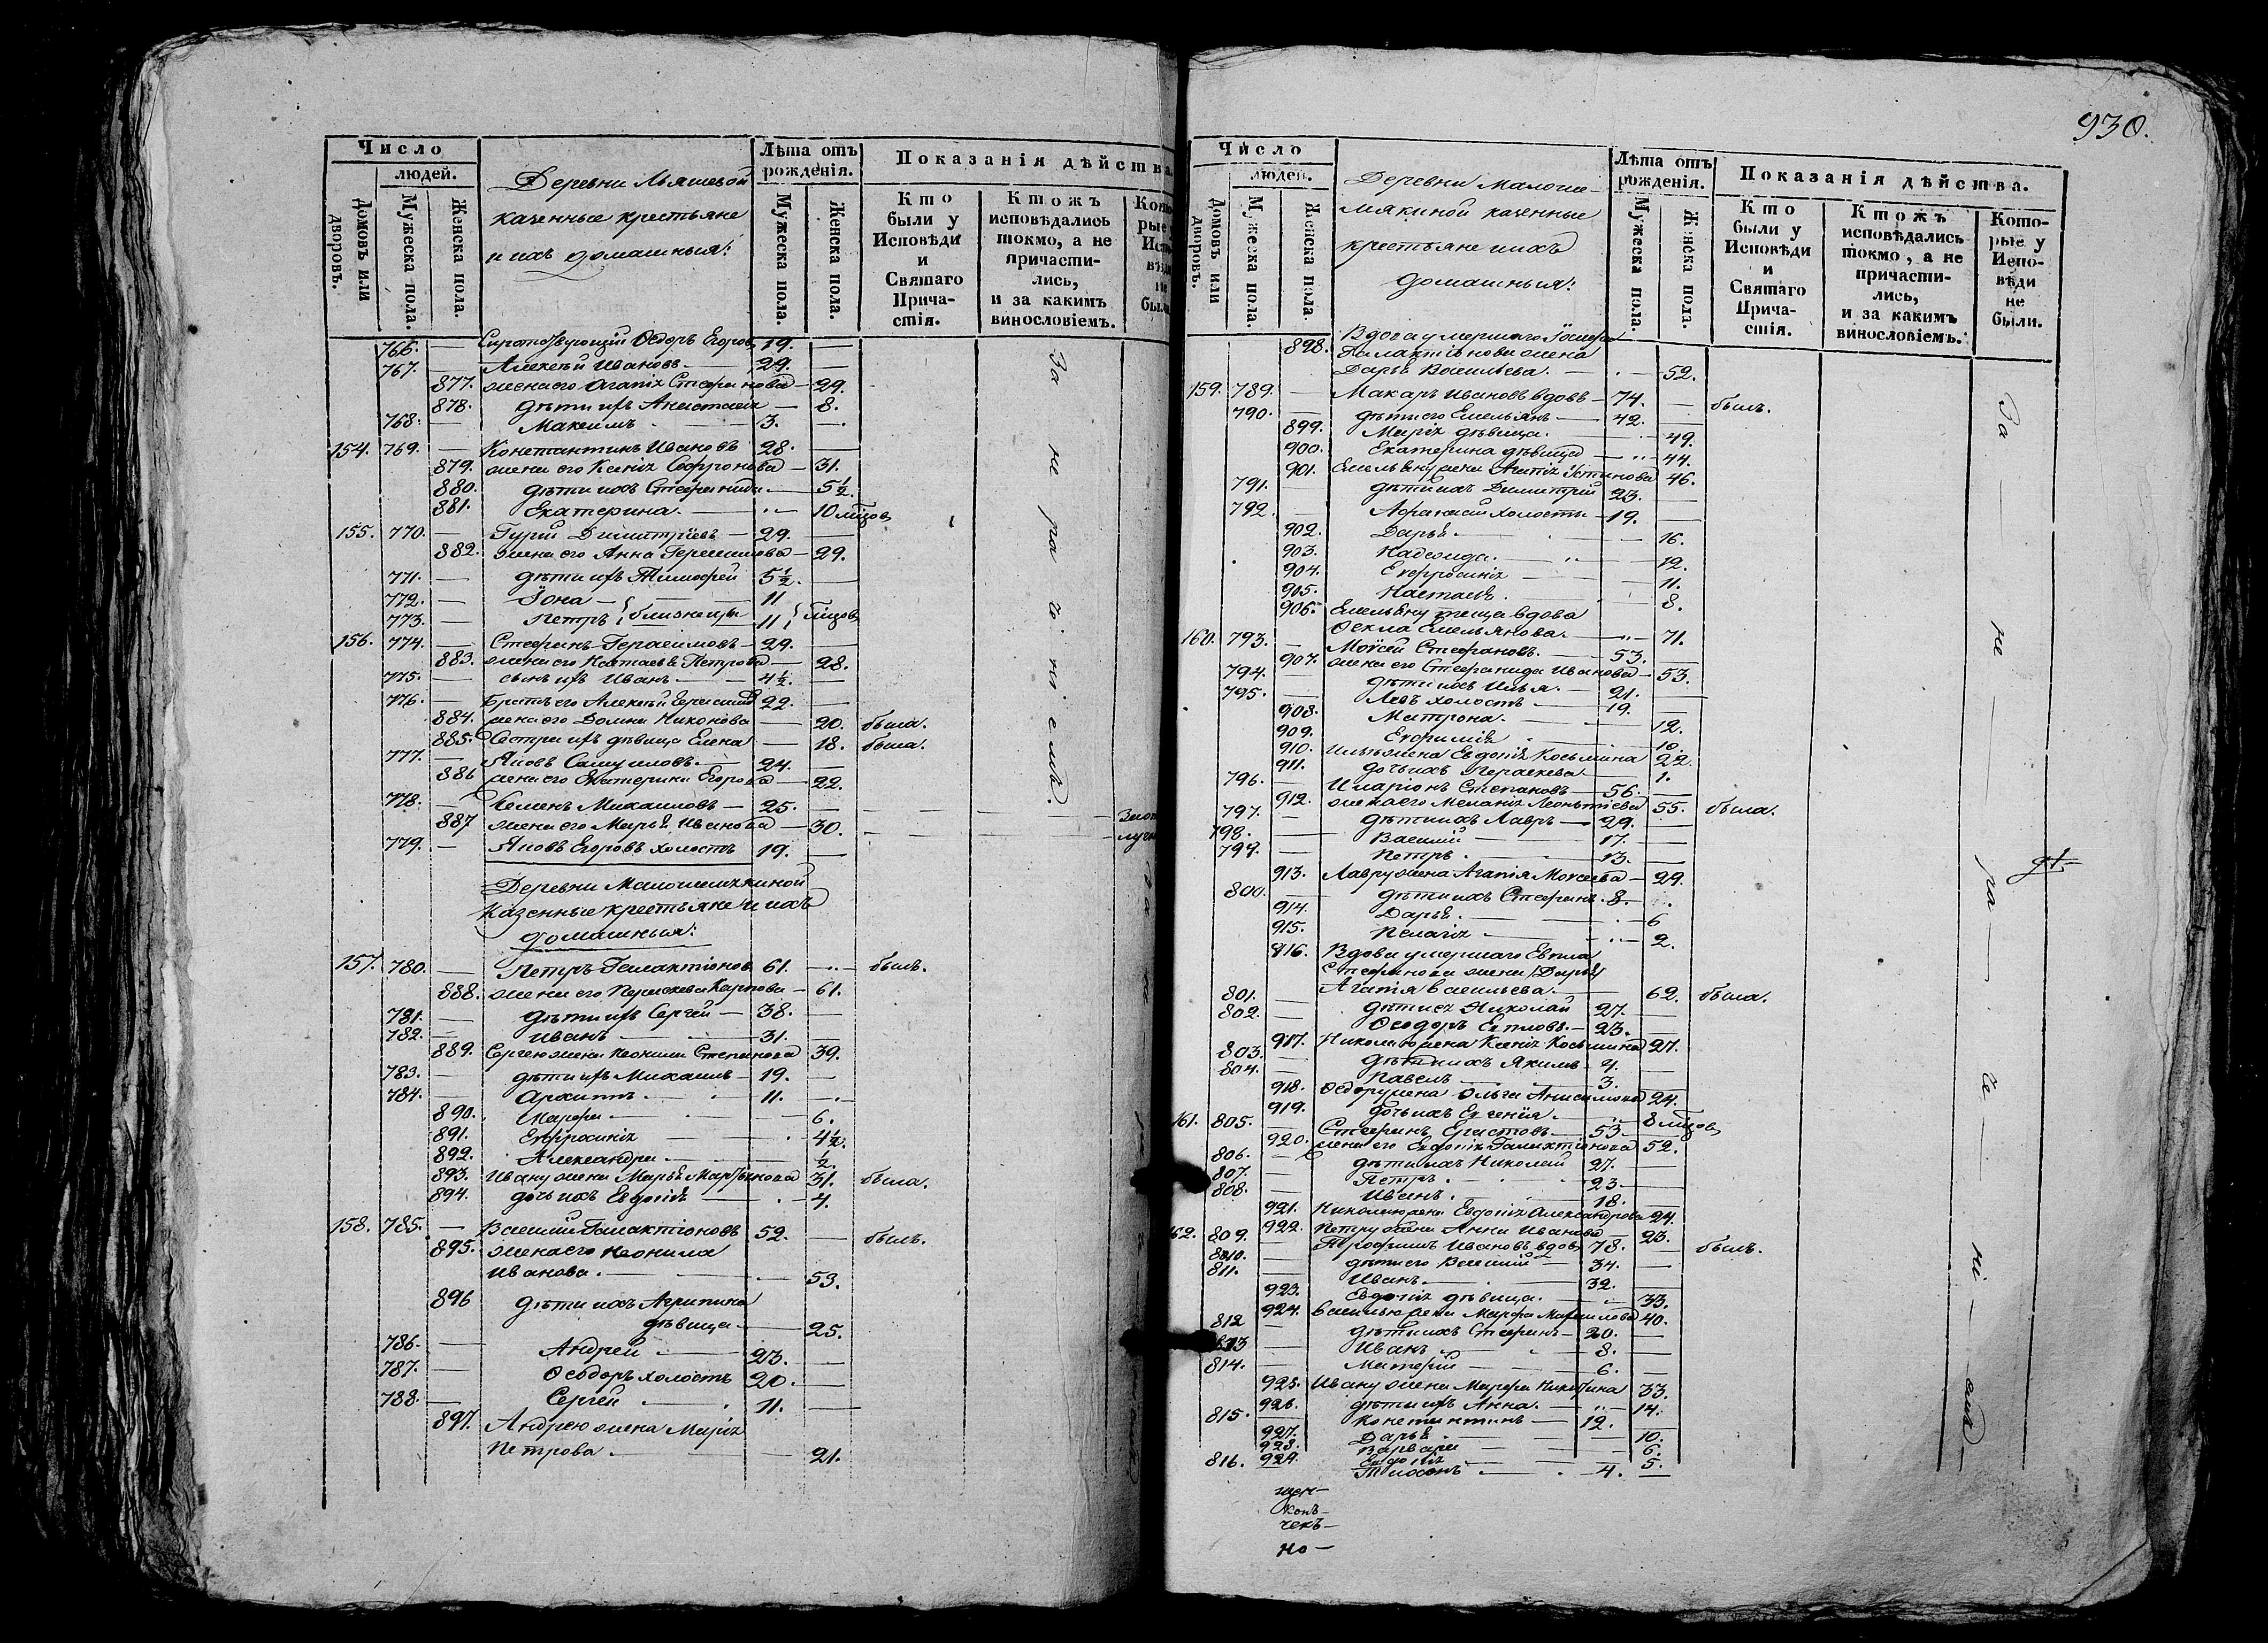 930.
Число
людей.
Домовъ или дворовъ.
Мужеска пола.
Женска пола.
Деревни Мяшевой
казенные крестьяне
и ихъ домашныя:
Лѣта отъ рожденія.
Мужеска пола.
Женска пола.
Показанія дѣйства.
Кто были у Исповѣди и Святаго Причастія.
Ктожъ исповѣдались токмо, а не причастились, и за какимъ винословіемъ.
766. — Ѳедоръ Егоровъ 19. —
767. — Алексѣй Ивановъ — 29. —
877. жена его Агапія Стефанова — 29.
878. дѣти ихъ Анастасія — 8.
768. — Максимъ — 3. —
154. 769. — Константинъ Ивановъ 28. —
879. жена его Ксенія Софронова — 31.
880. дѣти ихъ Стефанида — 5½.
881. Екатерина — 10 мѣсяцов
155. 770. — Гурій Димитріевъ — 29. —
882. жена его Анна Герасимова — 29.
771. — дѣти ихъ Тимофей 5½. —
772. — Іона — 11
773. — Петръ близнецы 11 мѣсяцов
156. 774. — Стефанъ Герасимовъ — 29. —
883. жена его Настасья Петрова — 28.
775. — сынъ ихъ Иванъ — 4½. —
776. — Братъ его Алексѣй Герасимов 22. —
884. жена его Домна Никонова — 20. была.
885. Сестра ихъ дѣвица Елена — 18. была.
777. — Яковъ Самуиловъ — 24. —
886 жена его Екатерина Егорова — 22.
778. — Михаиловъ — 25. —
887 жена его Марья Иванова — 30.
779. — Яковъ Егоровъ холостъ 19. —
Деревни Малошемякиной
Казенные крестьяне и ихъ
домашныя:
157. 780. — Петръ Галактіонов 61. — былъ.
888. жена его Параскева Карпова — 61.
781. — дѣти ихъ Сергей — 38. —
782. — Иванъ — 31. —
889. Сергею жена Неонила Степанова 39.
783. — дѣти ихъ Михаилъ — 19. —
784. — Архиппъ — 11. —
890. Марфа — 6.
891. Евфросинія — 4½.
892. Александра — ½.
893. Ивану жена Марья Мартынова 31. была.
894. дочь ихъ Евдокія — 4.
158. 785. — Василій Галактіоновъ 52. — былъ.
895. жена его Неонила
Иванова — 53.
896 дѣти ихъ Агрипина
дѣвица — 25.
786. — Андрей — 23. —
787. — Ѳеодоръ холостъ 20. —
788. — Сергей — 11. —
897. Андрею жена Марія
Петрова — 21.
За нерачениемъ.
Число
людей.
Домовъ или дворовъ.
Мужеска пола.
Женска пола.
Деревни Малоше-
мякиной казенные
крестьяне ихъ
домашныя:
Лѣта отъ рожденія.
Мужеска пола.
Женска пола.
Показанія дѣйства.
Кто были у Исповѣди и Святаго Причастія.
Ктожъ исповѣдались токмо, а не причастились, и за какимъ винословіемъ.
Которые у Исповѣди не были.
898. Вдова умершаго Іосифа
Галактіонова жена
Дарья Васильева — 52.
159. 789. — Макаръ Ивановъ вдовъ — 74. — былъ.
790. — дѣти его Емельянъ — 42. —
899. Марія дѣвица — 49.
900. Екатерина дѣвица — 44.
901. Емельяну жена Агапія Устинова 46.
791. — дѣти ихъ Димитрій 23. —
792. — Афанасій холостъ — 19. —
902. Дарья — 16.
903. Надежда — 12.
904. Евфросинія — 11.
905. Настасья — 8.
906. Емельяну теща вдова
Ѳекла Емельянова — 71.
160. 793. — Моѵсей Стефановъ — 53. —
907. жена его Стефанида Иванова — 53.
794. — дѣти ихъ Илья — 21. —
795. — Левъ холостъ — 19. —
908. Матрона — 12.
909. Евфимія — 10.
910. Ильѣ жена Евдокія Косьмина 22.
911. дочь ихъ Параскева — 1.
796. — Иларіонъ Степановъ — 56. —
912. жена его Меланія Леонтіева 55. была.
797. — дѣти ихъ Лавръ — 29. —
798. — Василій — 17. —
799. — Петръ — 13. —
913. Лавру жена Агапія Моисеева — 29.
800. — дѣти ихъ Стефанъ 8.
914. Дарья — 6
915. Пелагія — 2.
916. Вдова умершаго Евпла
Стефанова жена Дарья
Агапія Васильева — 62. была.
801. — дѣти ея Николай 27. —
802. — Ѳеодоръ Евпловъ — 23. —
917. Николаю жена Ксенія Косьмина 27.
803. — дѣти ихъ Якимъ — 4. —
804. — Павелъ — 3. —
918. Ѳедору жена Ольга Анисимова 24.
919. дочь ихъ Евгенія — 8 мѣсяцов
161. 805. — Стефанъ — 53. —
920. жена его Евдокія Галактіонова 52.
806. — дѣти ихъ Николай 27. —
807. — Петръ — 23. —
808. — Иванъ — 18. —
921. Николаю жена Евдокія Александрова 24.
922. Петру жена Анна Иванова — 23.
162. 809. — Трофимъ Ивановъ вдовъ 78. — былъ.
810. — дѣти его Василій — 34. —
811. — Иванъ — 32. —
923. Евдокія дѣвица — 33.
924. Василью жена Марфа 40.
812 — дѣти ихъ Стефанъ — 20. —
813 — Иванъ — 8. —
814. — Матвѣй — 6. —
925. Ивану жена Марфа Никитина 33.
926. дѣти ихъ Анна — 14.
815. — Константинъ — 12. —
927. Дарья — 10.
928. Варвара — 6.
929. Евдокія — 5.
816. Тихонъ — 4. —
За нерачениемъ